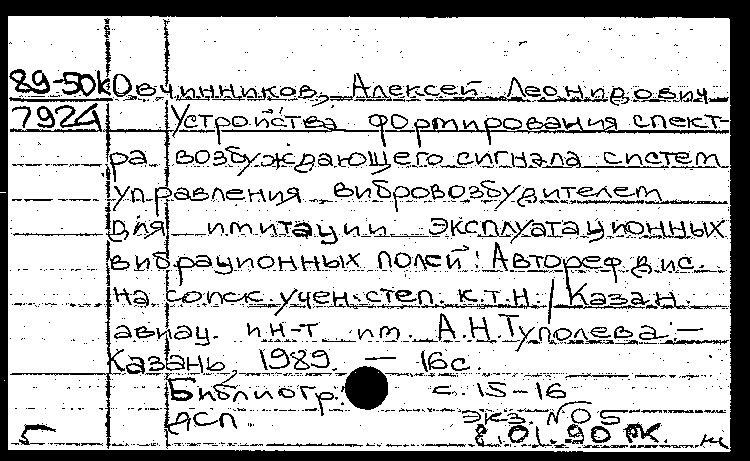 89-50к Овчинников, Алексей Леонидович
7924 Устройства формирования спект-
ра возбуждающего сигнала систем
управления вибровозбудителем
для имитации эксплуатационных
вибрационных полей: Автореф дис.
на соиск. учен. степ. к.т.н. / Казан.
авиац. ин-т им. А.Н.Туполева. —
Казань, 1989. — 16 с.
Библиогр.: с. 15-16
ДСП. экз. № 05
5 8.01.90